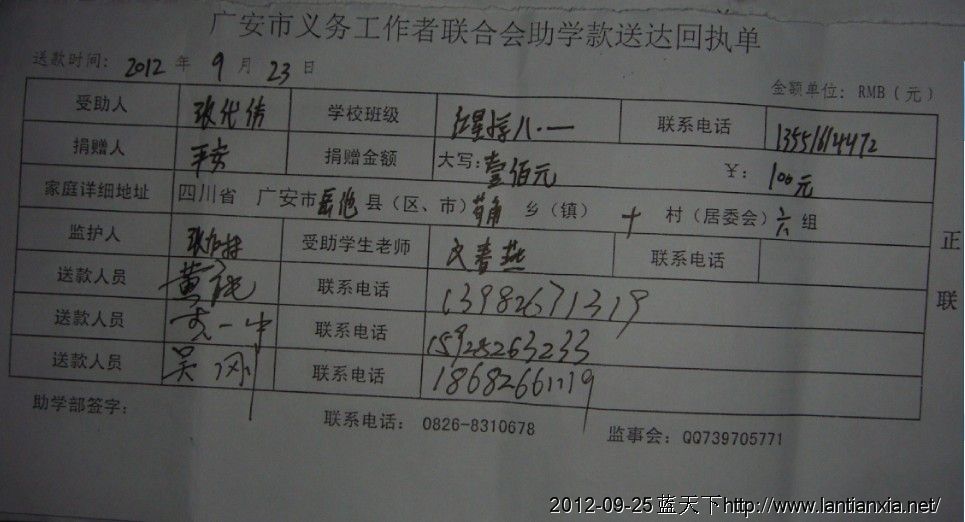 广安市义务工作者联合会助学款送达回执单
送款时间: 2012 年 9 月 23 日
金额单位: RMB（元）
受助人 张代倩 学校班级 红星 八.一 联系电话 13551614472
捐赠人 平安 捐赠金额 大写:壹佰元 ￥: 100元
家庭详细地址 四川省 广安市岳池县（区、市）苟角乡（镇） 十 村（居委会）六组
监护人 受助学生老师 文春燕 联系电话
送款人员 黄 联系电话 13982671319
送款人员 一中 联系电话 15928263233
送款人员 吴刚 联系电话 18682661119
正联
助学部签字: 联系电话: 0826-8310678 监事会: QQ739705771
2012-09-25蓝天下http://www.lantianxia.net/